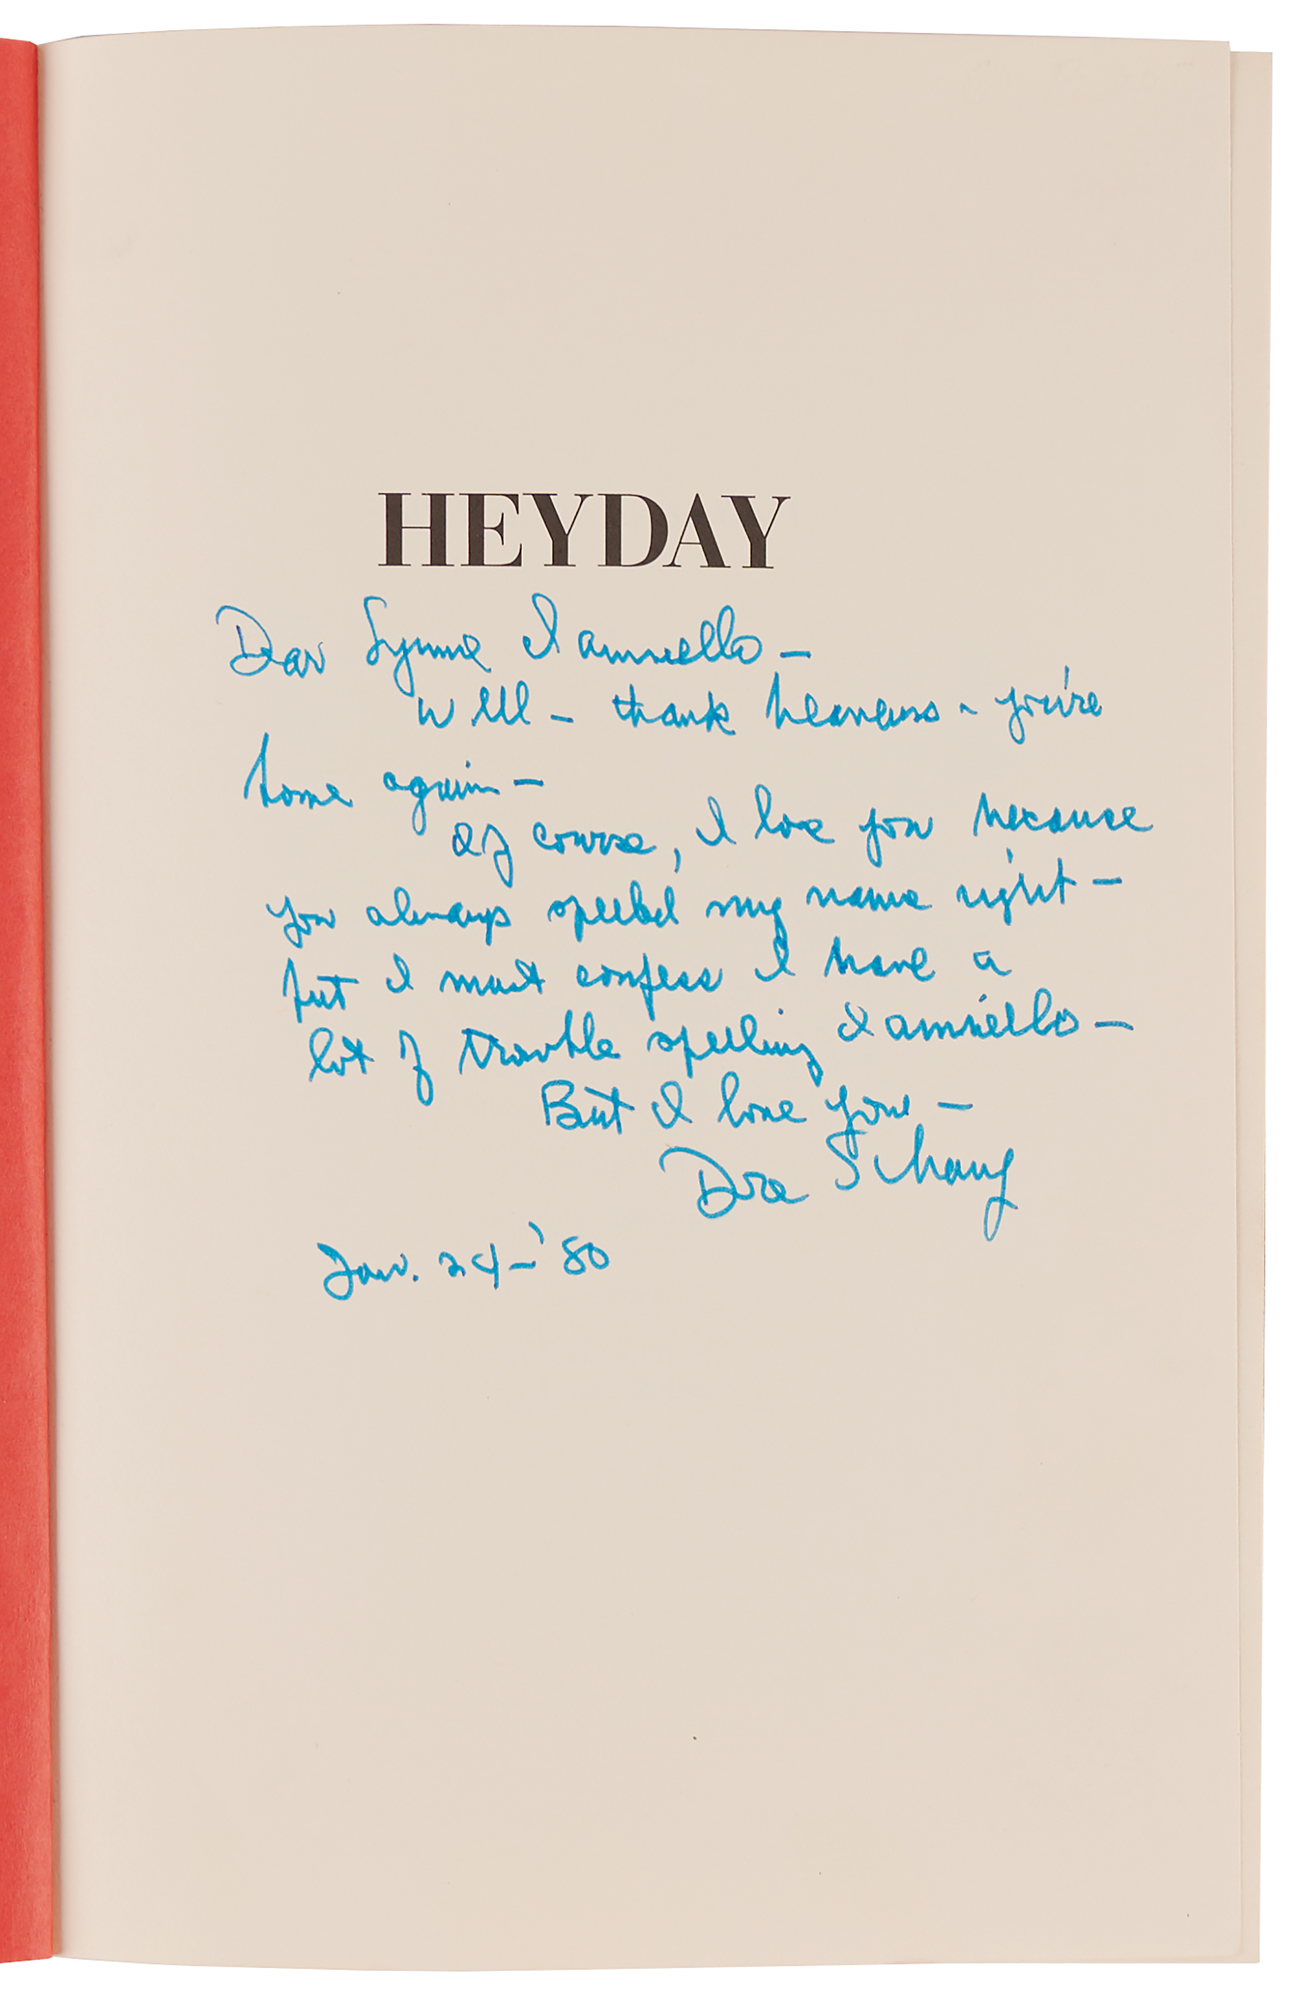 HEYDAY
Dear Lynne Ianniello –
Well – thank heavens – you're
home again –
Of course, I love you because
you always spelled my name right –
but I must confess I have a
lot of trouble spelling Ianniello –
But I love you –
Dore Schary
Jan. 24 – '80